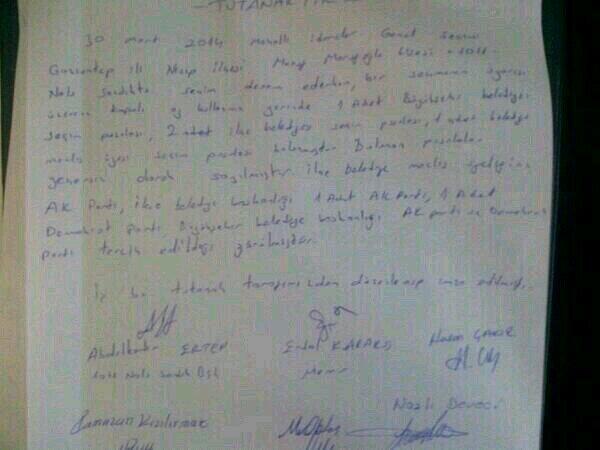 - TUTANAKTIR -
30 mart 2014 Mahalli idareler Genel Seçimi
Gaziantep ili Nizip ilçesi Lisesi
Nolu sandıkta seçim devam ederken, bir seçmenin uyarısı
üzerine kapalı oy kullanma yerinde 1 Adet Büyükşehir belediyesi
seçim pusulası, 2 adet ilçe belediyesi seçim pusulası, 1 adet belediye
meclis üyesi seçim pusulası bulunmuştur Bulunan pusulalar
geçersiz olarak sayılmıştır ilçe belediye meclis üyeliği
AK Parti, ilçe belediye başkanlığı 1 Adet AK Parti, 1 Adet
Demokrat parti Büyükşehir belediye başkanlığı AK parti ve Demokrat
Parti tercih edildiği görülmüştür.
İş bu tutanak tarafımızdan düzenlenip imza edilmiştir.
Abdulkadir ERTEP
Nolu Sandık Bşk
Erdal KARAKAŞ
Memur
Hasan ÇAKIR
Ramazan Kızılırmak
Nazlı Deveci